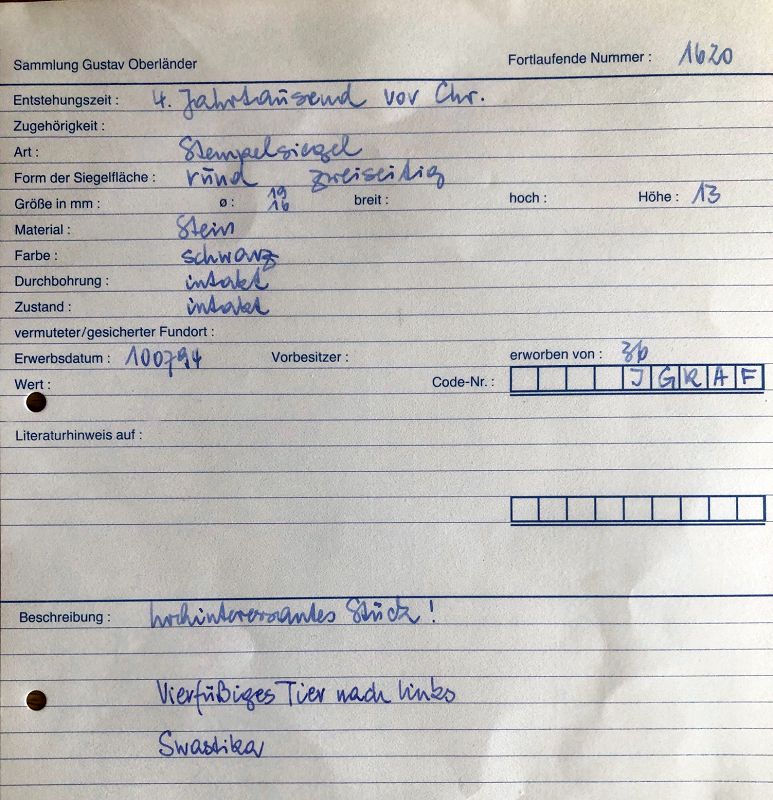 Sammlung Gustav Oberländer Fortlaufende Nummer : 1620
Entstehungszeit : 4. Jahrtausend vor Chr.
Zugehörigkeit :
Art : Stempelsiegel
Form der Siegelfläche : rund zweiseitig
Größe in mm : ø : 19 16 breit : hoch : Höhe : 13
Material : Stein
Farbe : schwarz
Durchbohrung : intakt
Zustand : intakt
vermuteter/gesicherter Fundort :
Erwerbsdatum : 100794 Vorbesitzer : erworben von : 36
Wert : Code-Nr. : J G R A F
Literaturhinweis auf :
Beschreibung : hochinteressantes Stück !
Vierfüßiges Tier nach links
Swastika